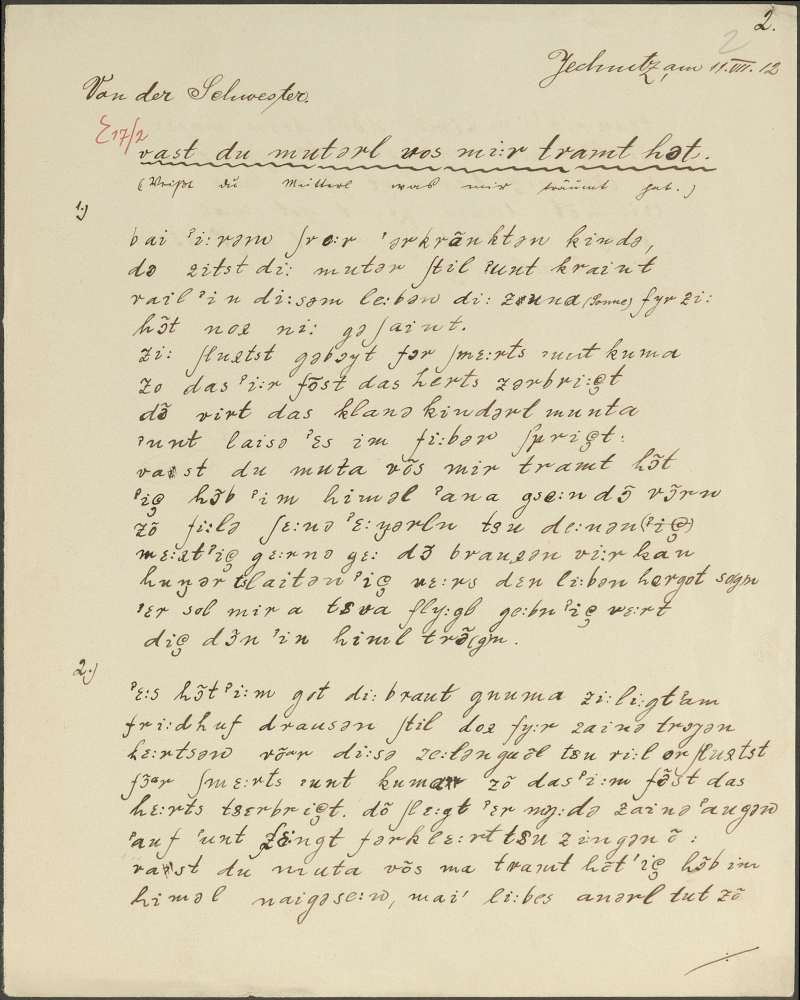 2.
2
Jechnitz, am 11.VIII.12
Von der Schwester.
E17/2
vast du mutərl vos mi:r tramt hɔt.
(Weißt du Mutterl was mir träumt hat.)
1.)
bai ˀi:rəm ʃvo:r ˀərkrãnktən kində,
dɔ zitst di: mutər ʃtil ˀunt kraint
vail ˀin di:səm le:bən di: zuna (Sonne) fyr zi:
hɔ̃t nox ni: gəʃaint.
zi: ʃluxtst gəbɔyt fɔr ʃme:rts ˀunt kuma
zo das ˀi:r fɔ̃st das herts zərbri:çt
dɔ̃ virt das klanə kindərl munta
ˀunt laisə ˀɛs im fi:bər ʃpriçt:
vaist du muta võs mir tramt hɔ̃t
ˀiç hɔ̃b ˀim himəl ˀana gse:n dɔ̃ vɔ̃rn
zõ fi:lə ʃe:nə ˀɛ:ŋərln tsu de:nən (ˀiç)
mɛ:xt ˀiç ge:rnə ge: dɔ̃ brauxən vi:r kan
huŋər tslaitən ˀiç vɛ:rs den li:bən hergot sogŋ
ˀer sol mir a tsva fly:gl ge:bn ˀiç vɛ:rt
diç dɔ̃n ˀin himl trɔ̃gŋ.
2.)
ˀɛ:s hɔ̃t ˀi:m got di: braut gnuma zi: li:gt ˀam
fri:dhuf drausən ʃtil dox fy:r zainə trɔyən
he:rtsən vɔ̃ar di:sə ze:ləngual tsu vi:l ər ʃluxtst
fɔ̃ar ʃmɛ:rts ˀunt kumar zõ das ˀi:m fɔ̃st das
hɛ:rts tsɛrbriçt. dõ ʃlɛ:gt ˀer my:də zainə ˀaugən
ˀauf ˀunt fɛ̃ngt fərklɛ:rt tsu zingən õ:
vaist du muta võs ma tramt hɔ̃t ˀiç hɔ̃b im
himəl naigəse:n, maiˀ li:bes anərl tut zõ